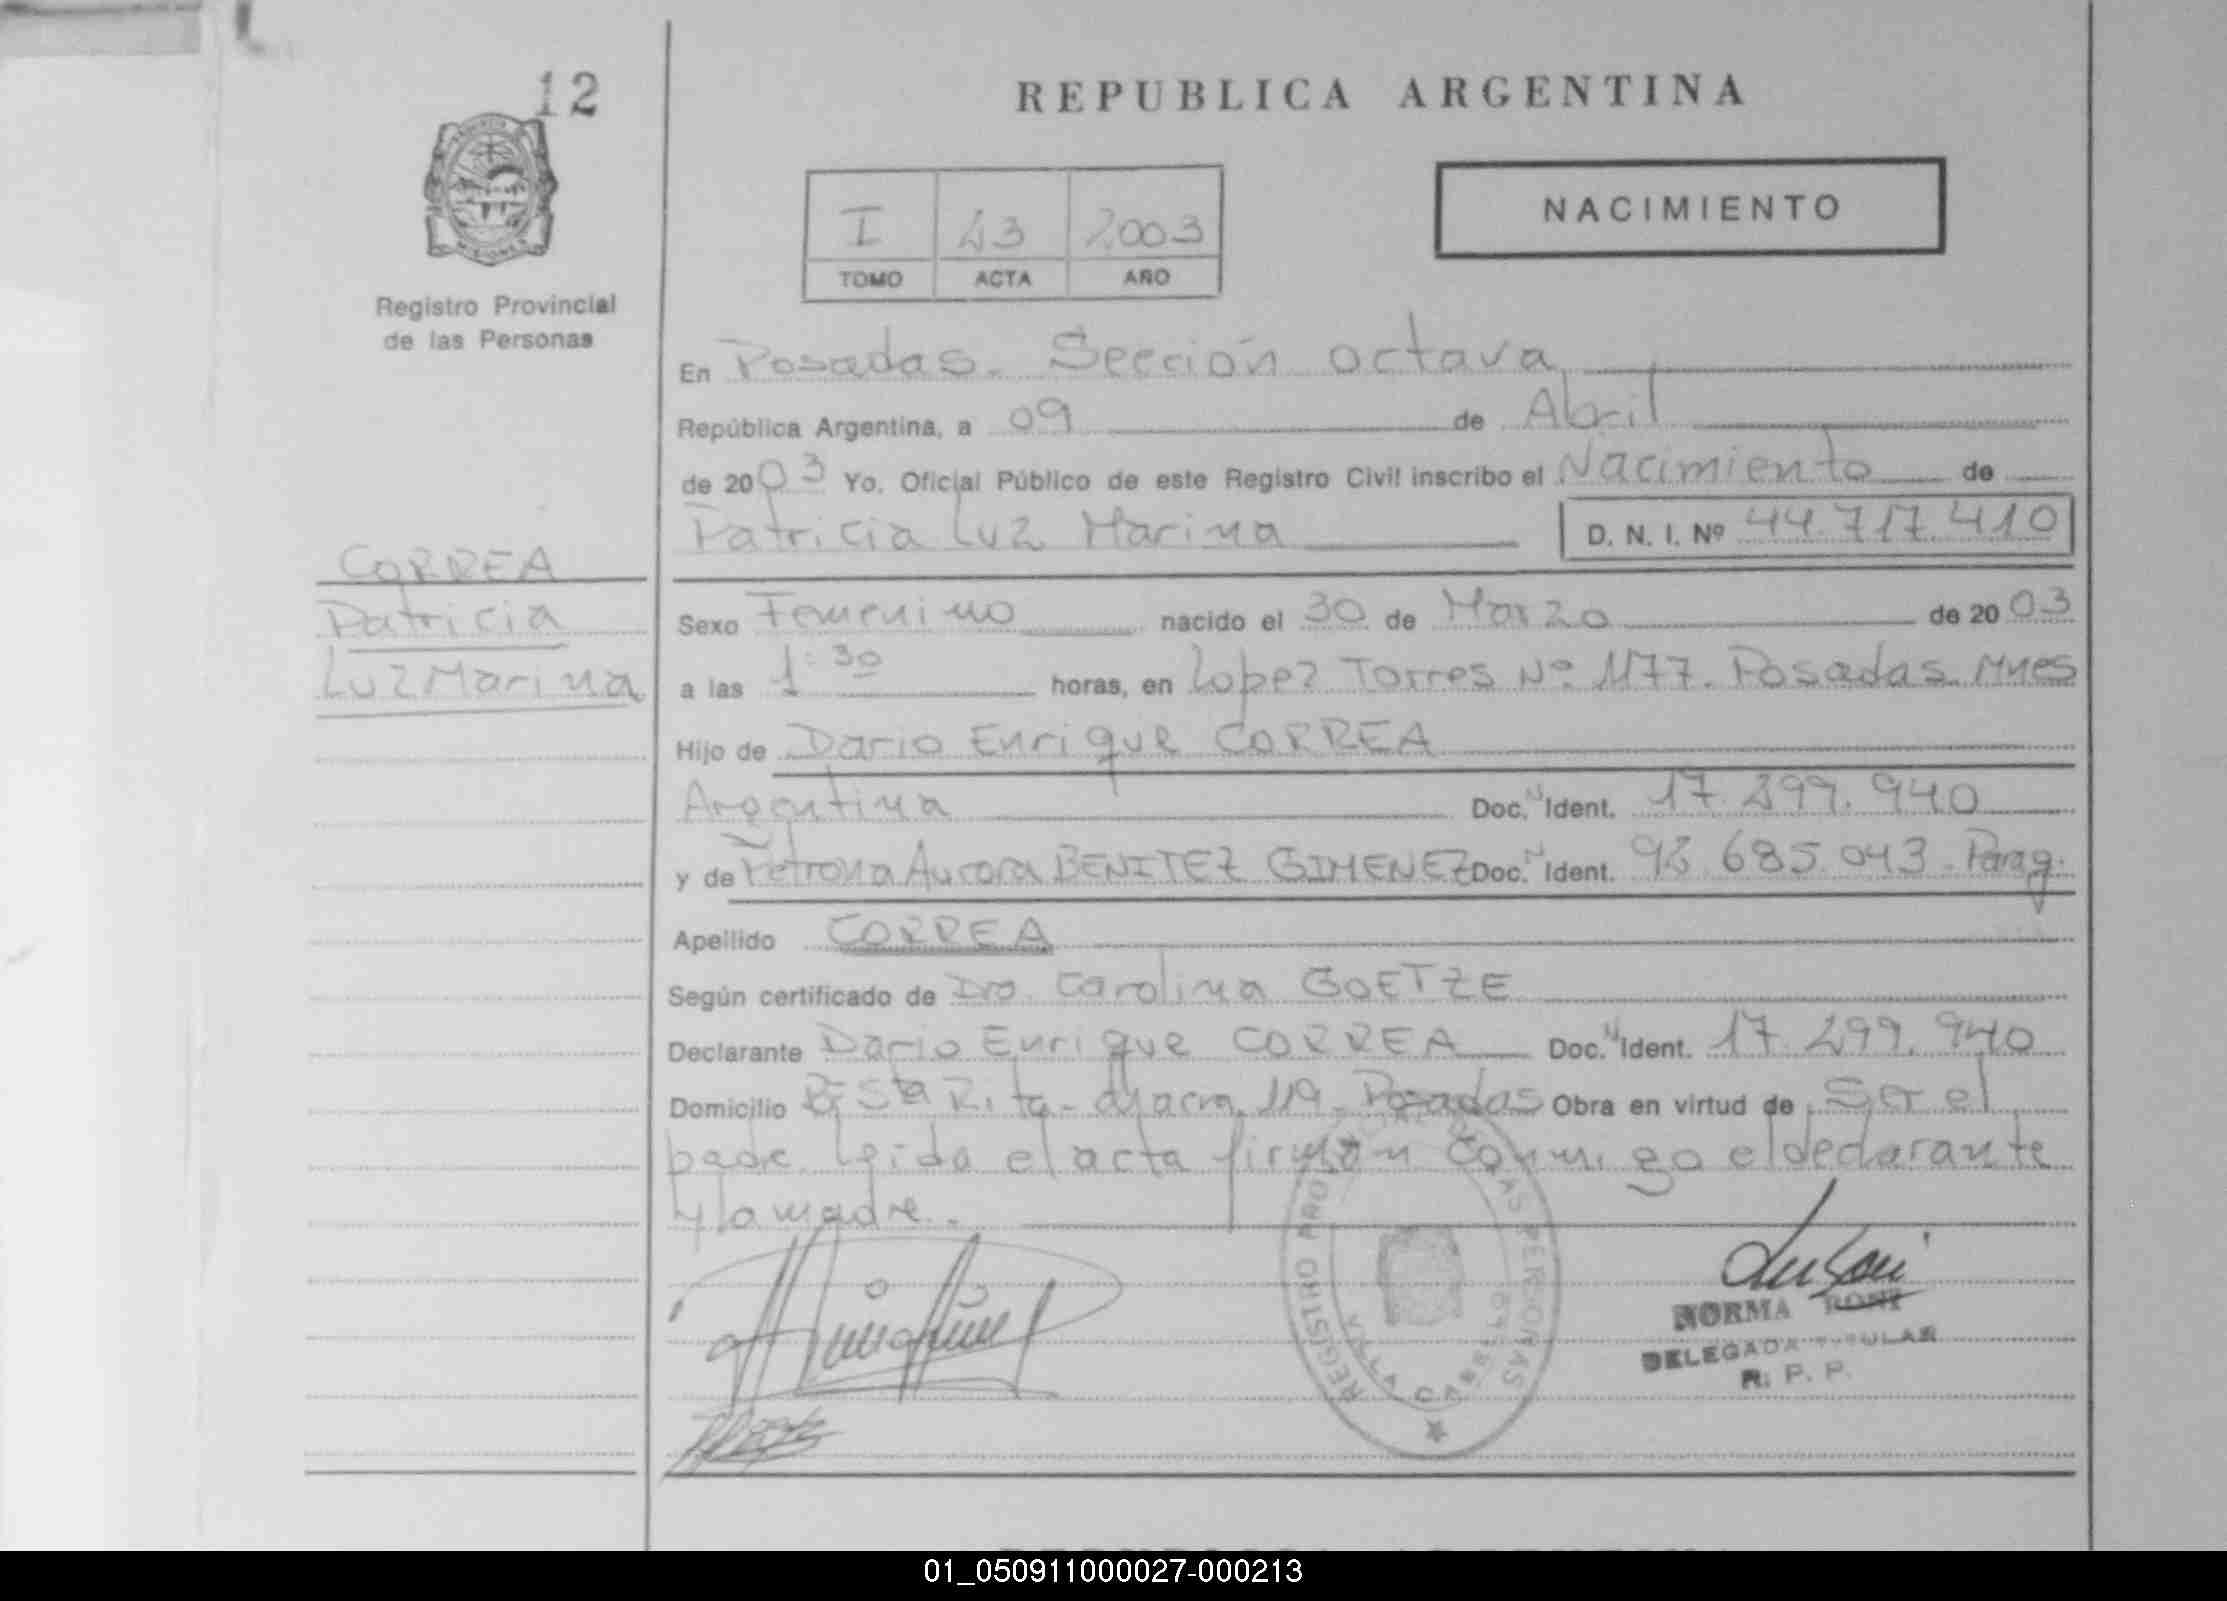 12
REPUBLICA ARGENTINA
NACIMIENTO
I 23 2003
TOMO ACTA AÑO
Registro Provincial
de las Personas
En Posadas. Sección octava
República Argentina, a 09 de Abril
de 2003 Yo. Oficial Público de este Registro Civil inscribo el Nacimiento de
Patricia Luz Marina D. N. I. Nº 44.717.410
CORREA
Patricia
Luz Marina
Sexo Femenino nacido el 30 de Marzo de 2003
a las 1:30 horas, en Lopez Torres Nº 1177. Posadas. Mnes
Hijo de Dario Enrique CORREA
Argentina Doc. N Ident. 17.299.940
y de Petrona Aurora BENITEZ GIMENEZ Doc. N Ident. 685.043 - Parag.
Apellido CORREA
Según certificado de Dra. Carolina GOETZE
Declarante Dario Enrique CORREA Doc. N Ident. 17.299.940
Domicilio Bº Sta Rita - chacra 119. Posadas Obra en virtud de Ser el
padre leida el acta firman conmigo el declarante
y la madre.
REGISTRO PROVINCIAL DE LAS PERSONAS
VILLA CABELLO
NORMA BONI
DELEGADA TITULAR
R. P. P.
01_050911000027-000213